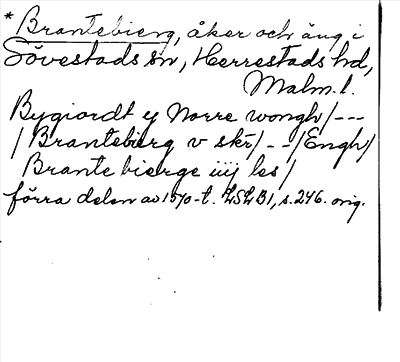 * Brantebierg, åker och äng i
Sövestads sn, Herrestads hd,
Malm. l.
Bygiordt ej Norre wongh/---
/Branteberg v skr/--/Engh/
Brante bierge iiij les/
förra delen av 1570-t. LSLB1, s. 246. orig.